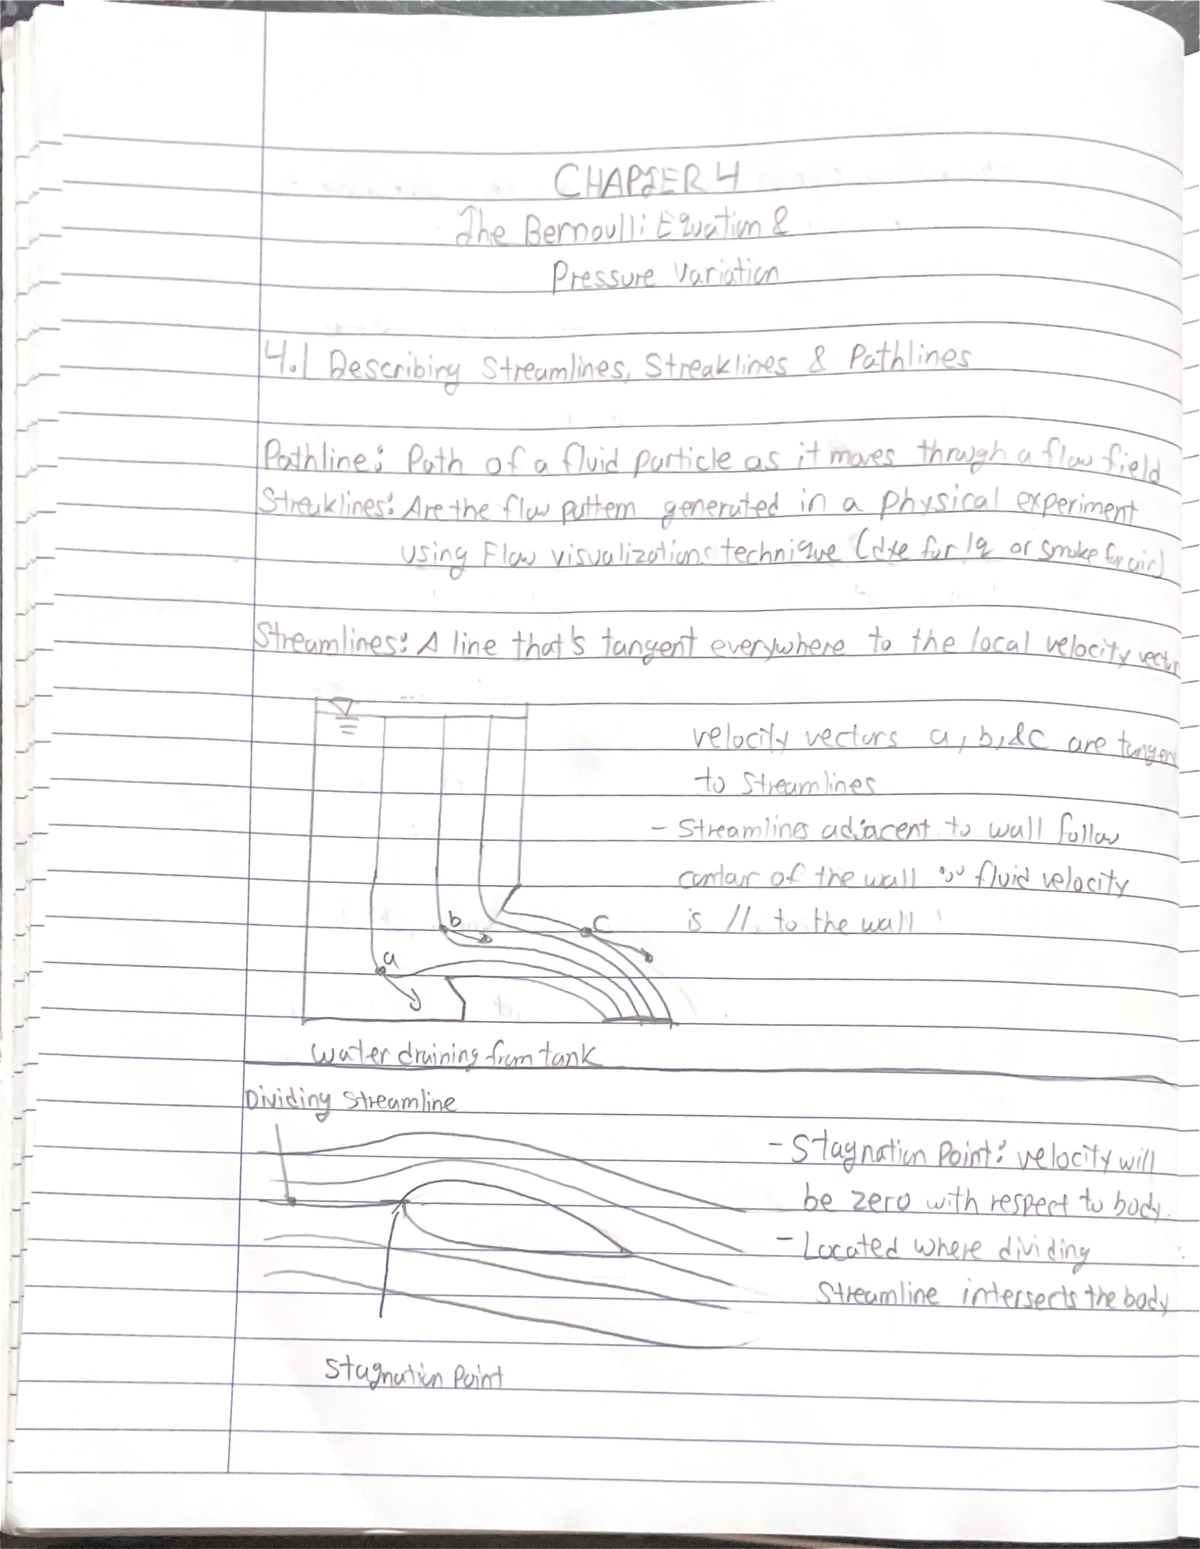 CHAPTER 4
The Bernoulli Equation &
Pressure Variation
4.1 Describing Streamlines, Streaklines & Pathlines
Pathline: Path of a fluid particle as it moves through a flow field
Streaklines: Are the flow pattern generated in a physical experiment
using Flow visualizations technique (dye for lq or smoke for air)
Streamlines: A line that's tangent everywhere to the local velocity vector
velocity vectors a, b, & c are tangent
to streamlines
- Streamlines adjacent to wall follow
contour of the wall fluid velocity
is // to the wall
b
c
a
water draining from tank
Dividing Streamline
- Stagnation Point: velocity will
be zero with respect to body.
- Located where dividing
Streamline intersects the body
Stagnation Point